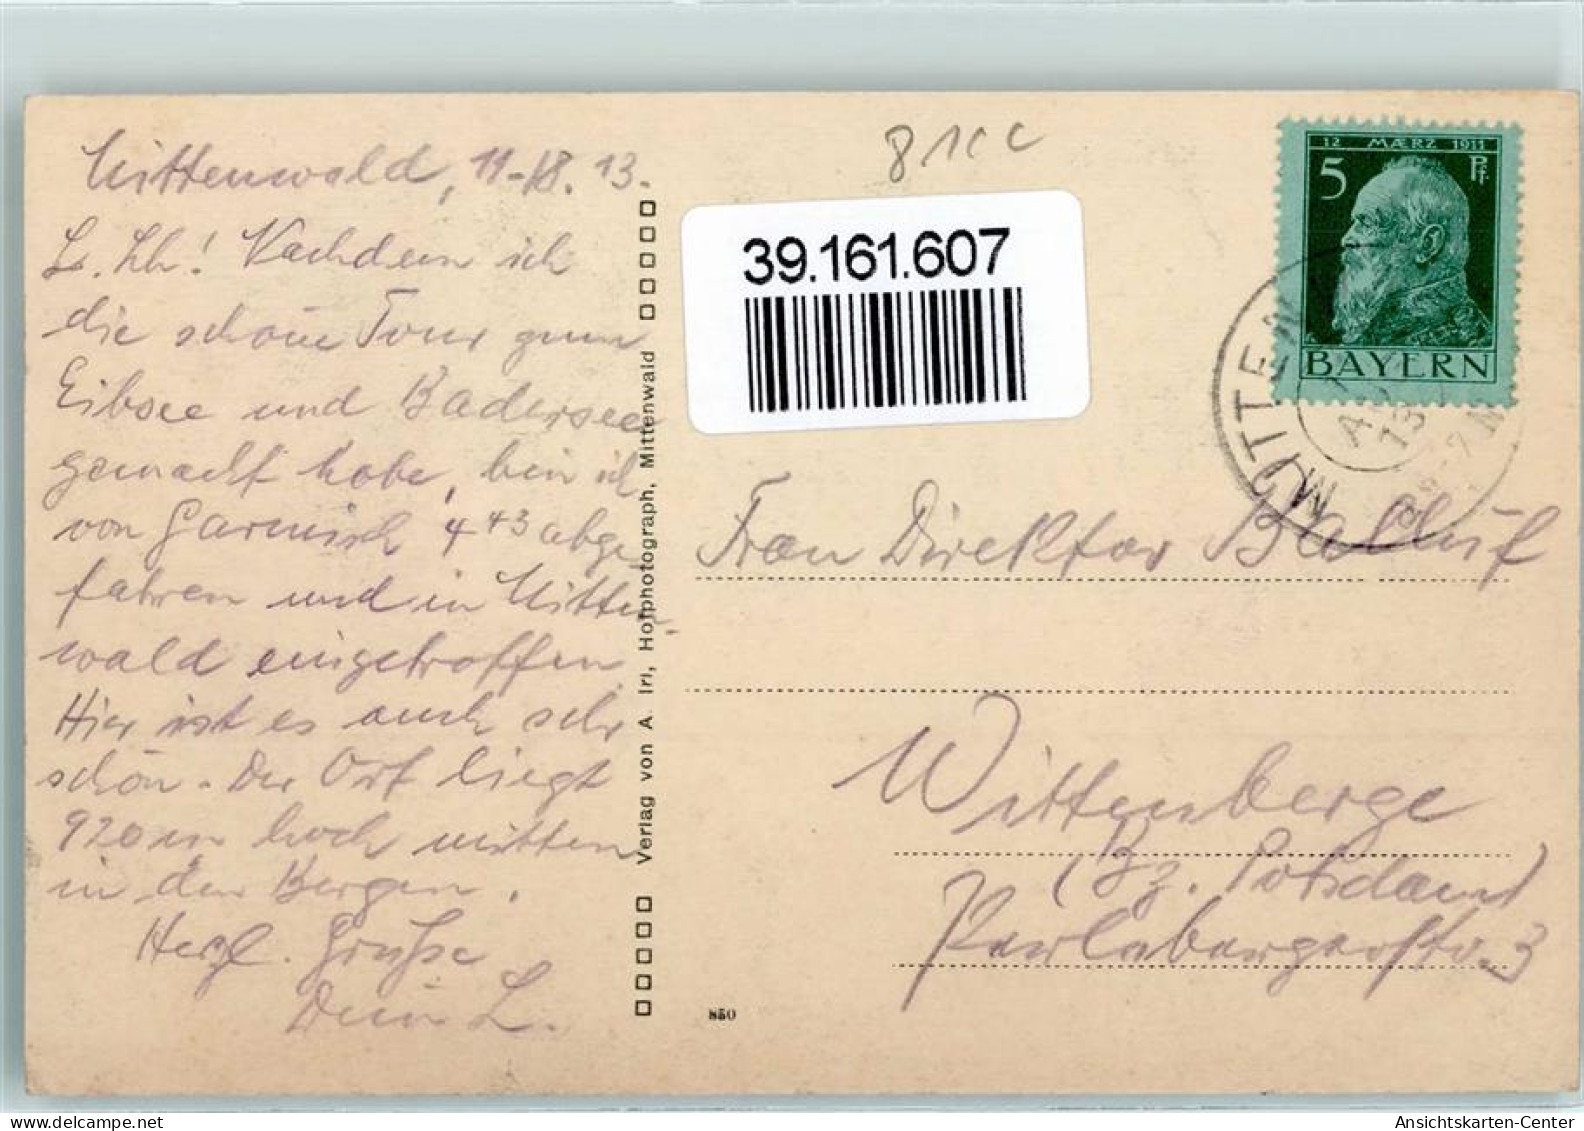 Mittenwald, 11./8. 13.
L. Lh! Nachdem ich
die schöne Tour zum
Eibsee und Badersee
gemacht habe, bin ich
von Garmisch 4 43 abge-
fahren und in Mitten-
wald eingetroffen
Hier ist es auch sehr
schön. Der Ort liegt
920 m hoch mitten
in den Bergen.
Herzl. Grüße
Dein L.
Verlag von A. Iri, Hofphotograph, Mittenwald
850
39.161.607
12 MÆRZ 1911
5 Pf.
BAYERN
MITTENW
13
Frau Direktor Balluf
Wittenberge
(Bz. Potsdam)
Perlebergerstr. 3
Ansichtskarten-Center